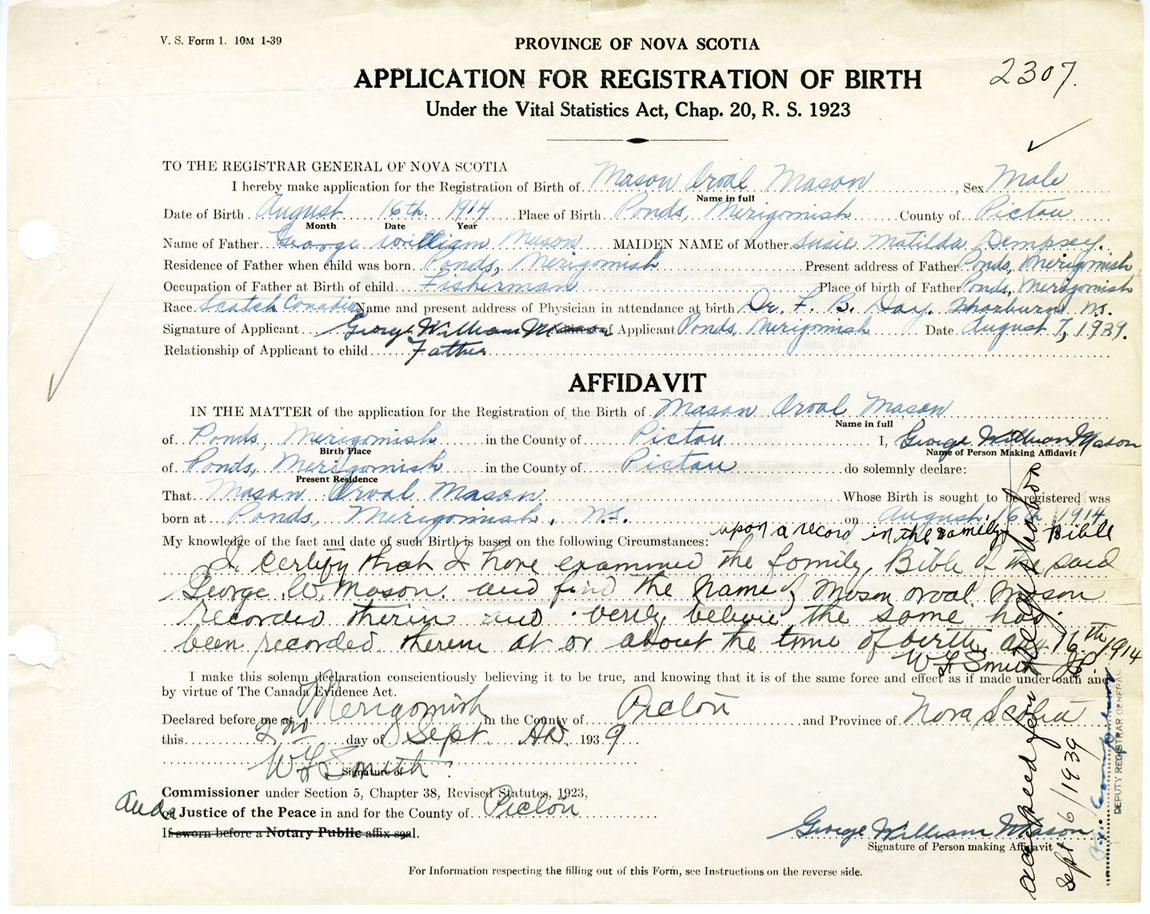 V. S. Form 1. 10M 1-39
PROVINCE OF NOVA SCOTIA
2307.
APPLICATION FOR REGISTRATION OF BIRTH
Under the Vital Statistics Act, Chap. 20, R. S. 1923
TO THE REGISTRAR GENERAL OF NOVA SCOTIA
I hereby make application for the Registration of Birth of Mason Orval Mason Sex Male
Name in full
Date of Birth August 16th 1914 Place of Birth Ponds, Merigomish County of Pictou
Month Date Year
Name of Father George William Mason MAIDEN NAME of Mother Susie Matilda Dempsey.
Residence of Father when child was born Ponds, Merigomish Present address of Father Ponds, Merigomish
Occupation of Father at Birth of child Fisherman Place of birth of Father Ponds, Merigomish
Race Scotch Canadian Name and present address of Physician in attendance at birth Dr. F. B. Day. Thorburn N.S.
Signature of Applicant George William Mason of Applicant Ponds, Merigomish Date August 7, 1939.
Relationship of Applicant to child Father
AFFIDAVIT
IN THE MATTER of the application for the Registration of the Birth of Mason Orval Mason
Name in full
of Ponds, Merigomish in the County of Pictou I, George William Mason
Birth Place Name of Person Making Affidavit
of Ponds, Merigomish in the County of Pictou do solemnly declare:
Present Residence
That Mason Orval Mason Whose Birth is sought to be registered was
born at Ponds, Merigomish, N.S. on August 16th 1914
My knowledge of the fact and date of such Birth is based on the following Circumstances: upon a record in the Family Bible
I certify that I have examined the family Bible of the said
George W. Mason and find the name of Mason Orval Mason
recorded therin and verily believe the same has
been recorded therein at or about the time of birth 16th 1914
W F Smith JP
I make this solemn declaration conscientiously believing it to be true, and knowing that it is of the same force and effect as if made under oath and
by virtue of The Canada Evidence Act.
Declared before me at Merigomish in the County of Pictou and Province of Nova Scotia
this 2nd day of Sept. AD. 1939
W F Smith
Signature of
Commissioner under Section 5, Chapter 38, Revised Statutes, 1923,
and a Justice of the Peace in and for the County of Pictou
If sworn before a Notary Public affix seal.
George William Mason
Signature of Person making Affidavit
For Information respecting the filling out of this Form, see Instructions on the reverse side.
accepted for registration
Sept 6/1939
DEPUTY REGISTRAR GENERAL